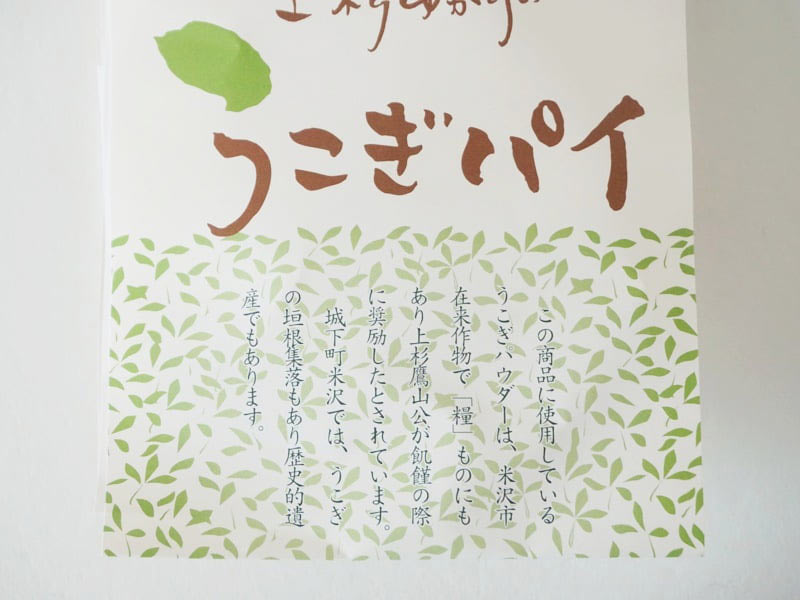 上杉ゆかりの
うこぎパイ
この商品に使用している
うこぎパウダーは、米沢市
在来作物で「糧」ものにも
あり上杉鷹山公が飢饉の際
に奨励したとされています。
城下町米沢では、うこぎ
の垣根集落もあり歴史的遺
産でもあります。